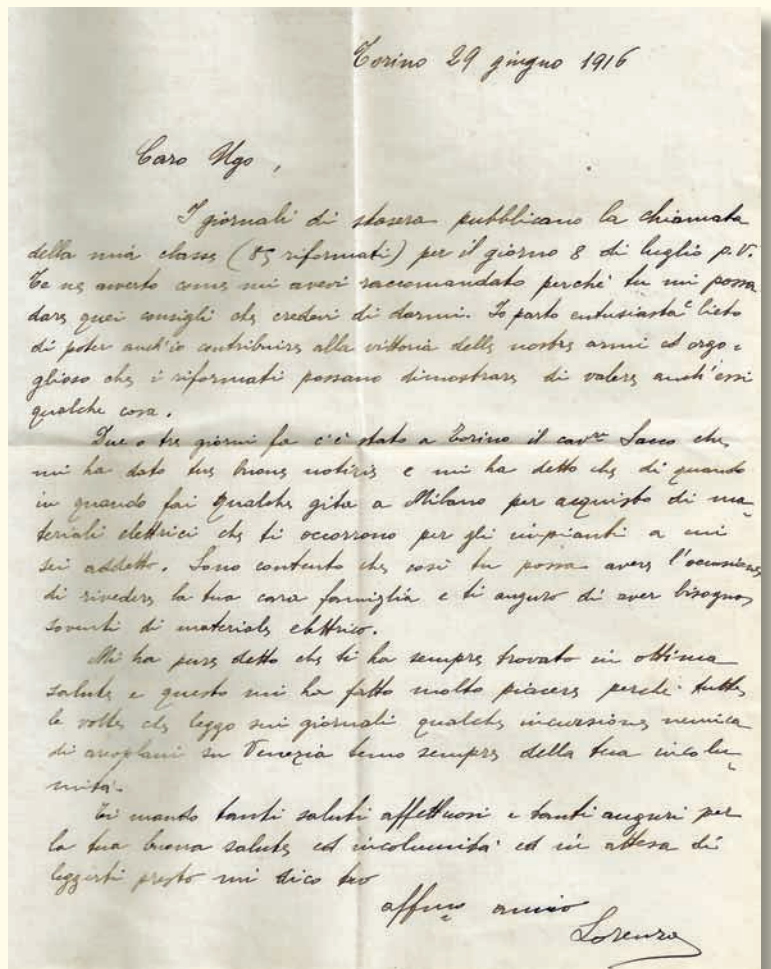 Torino 29 giugno 1916
Caro Ugo,
I giornali di stasera pubblicano la chiamata
della mia classe (85 riformati) per il giorno 8 di luglio p.v.
Te ne averto come mi avevi raccomandato perché tu mi possa
dare quei consigli che credevi di darmi. Io parto entusiasta e lieto
di poter anch'io contribuire alla vittoria delle nostre armi ed orgo-
glioso che i riformati possano dimostrare di valere anch'essi
qualche cosa.
Due o tre giorni fa c'è stato a Torino il cavre Sacco che
mi ha dato tue buone notizie e mi ha detto che di quando
in quando fai qualche gita a Milano per acquisto di ma-
teriali elettrici che ti occorrono per gli impianti a cui
sei addetto. Sono contento che così tu possa avere l'occasione
di rivedere la tua cara famiglia e ti auguro di aver bisogno
soventi di materiale elettrico.
Mi ha pure detto che ti ha sempre trovato in ottima
salute e questo mi ha fatto molto piacere perché tutte
le volte che leggo sui giornali qualche incursione nemica
di areoplani su Venezia temo sempre della tua incolu-
mità.
Ti mando tanti saluti affettuosi e tanti auguri per
la tua buona salute ed incolumità ed in attesa di
leggerti presto mi dico tuo
affmo amico
Lorenzo